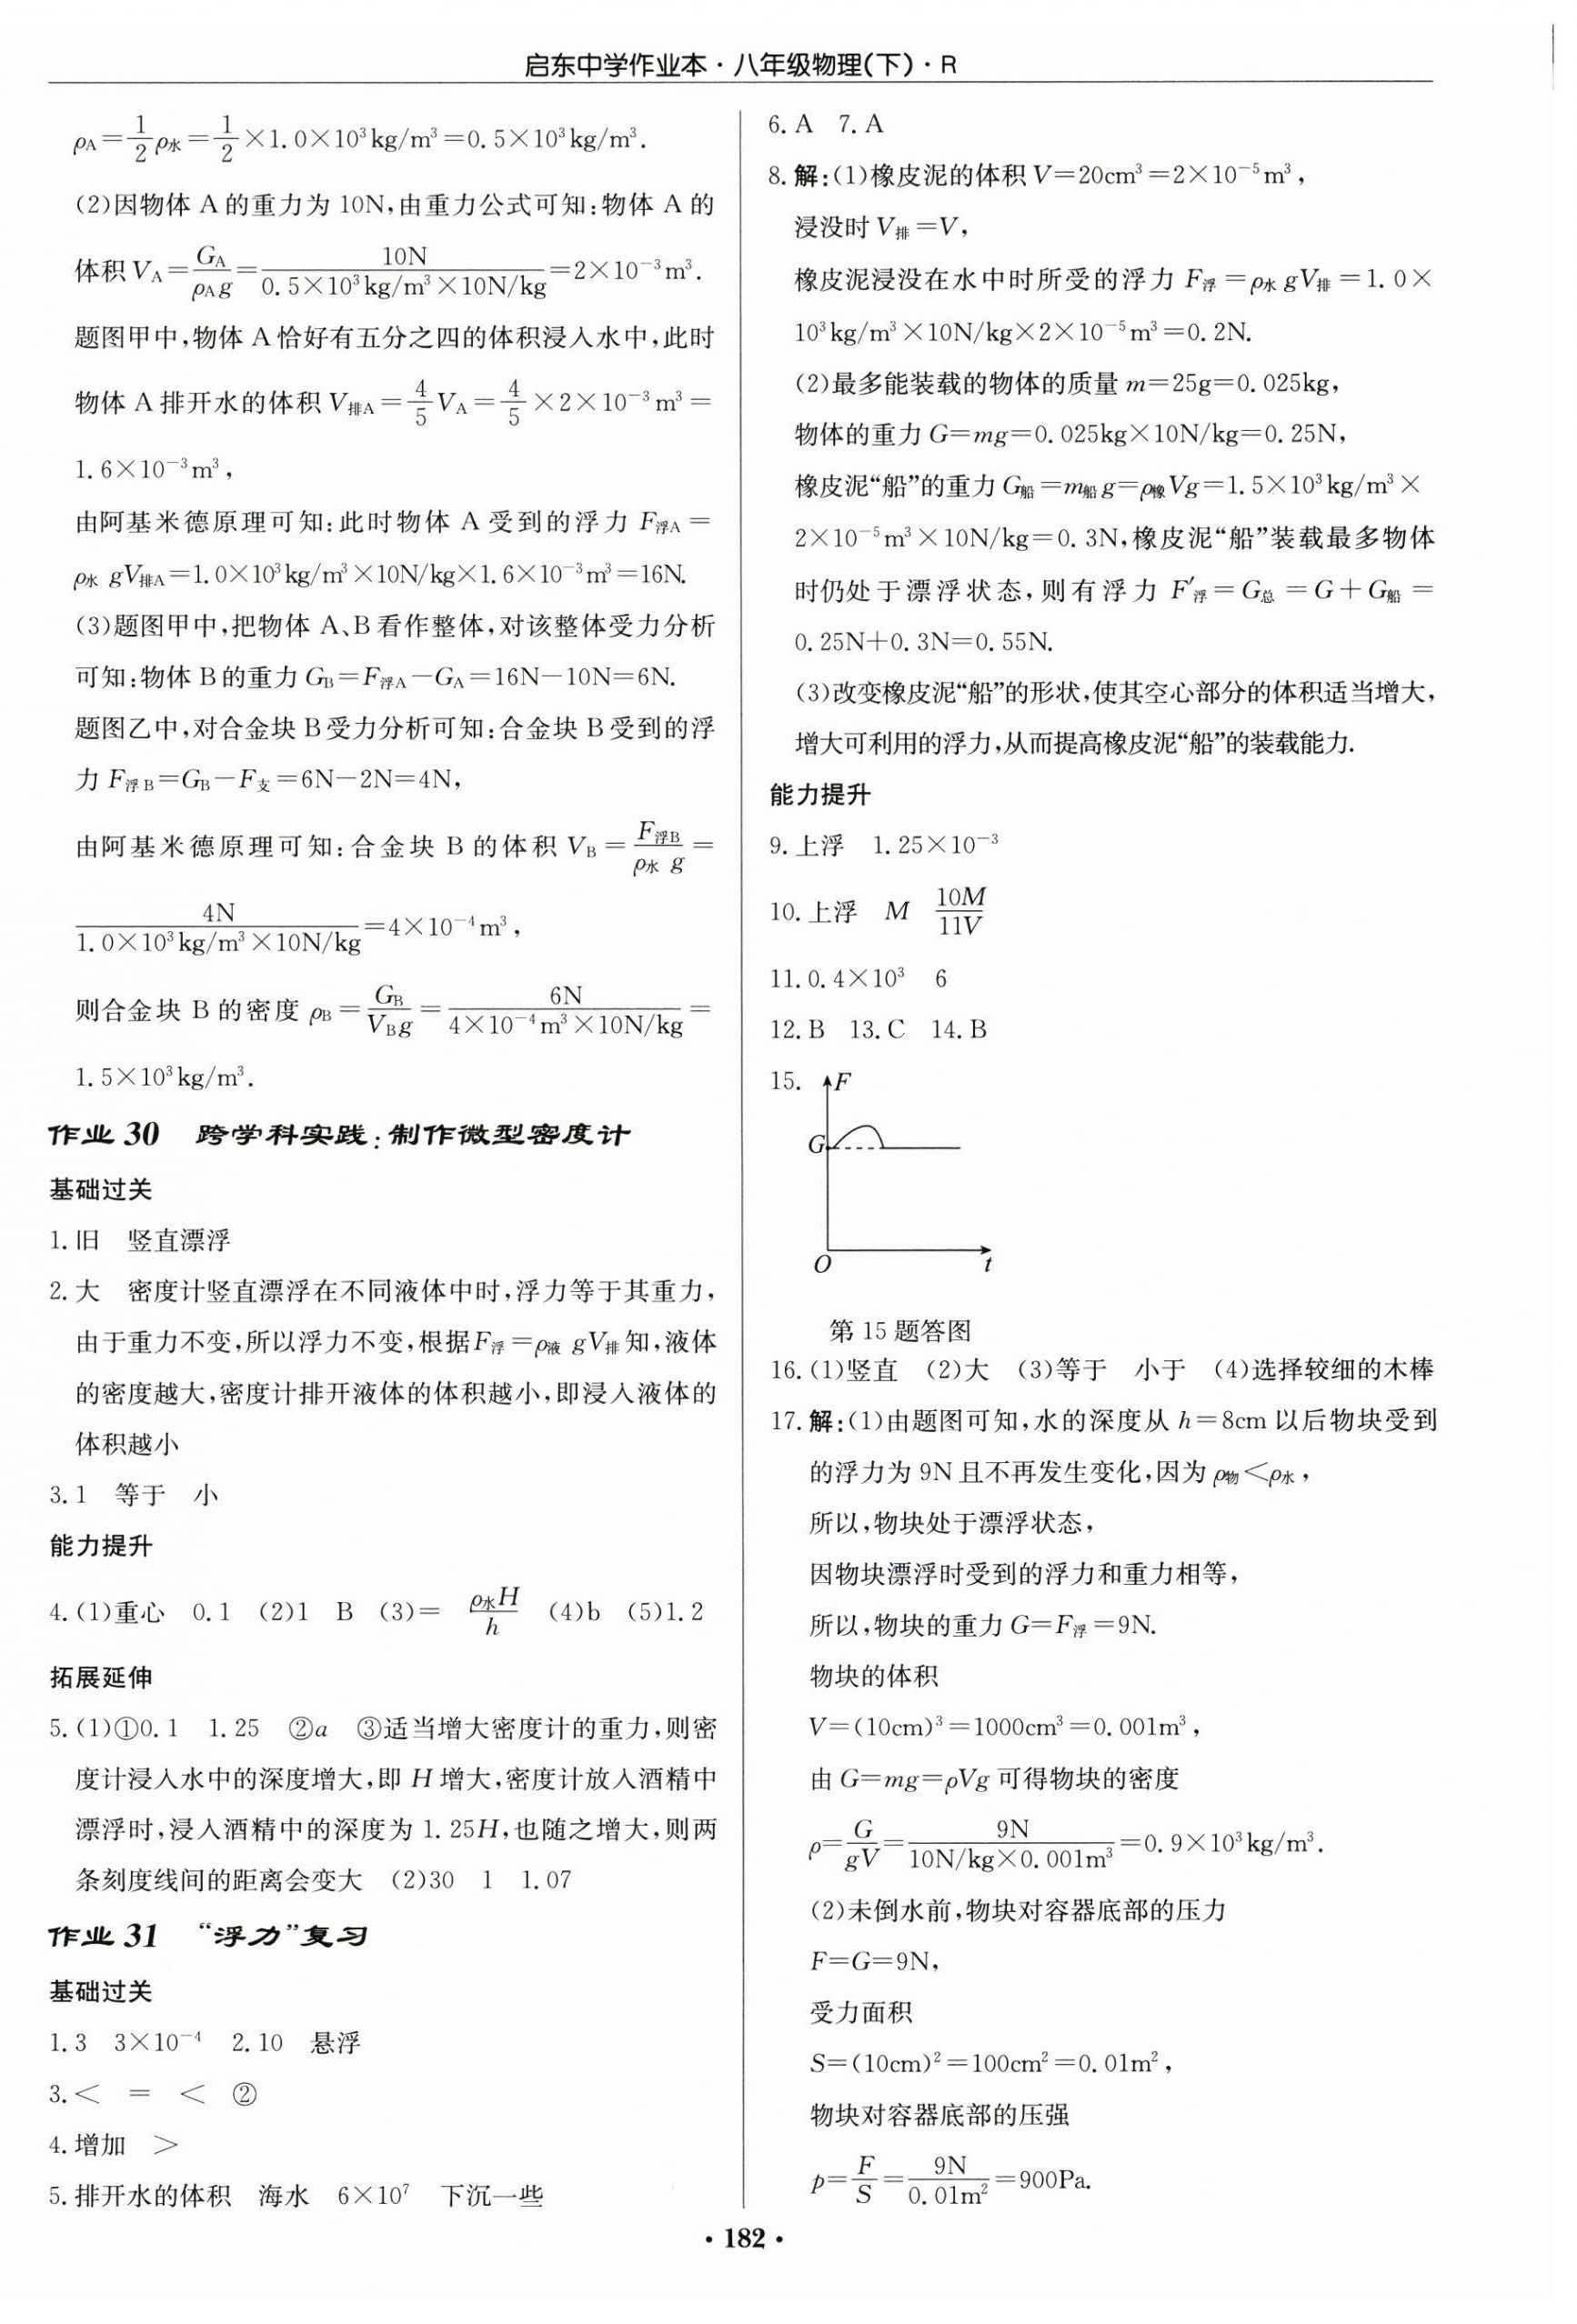 启东中学作业本·八年级物理(下)·R
ρA=1/2ρ水=1/2×1.0×10³kg/m³=0.5×10³kg/m³.
(2)因物体 A 的重力为 10N,由重力公式可知:物体 A 的
体积 VA=GA/ρAg=10N/0.5×10³kg/m³×10N/kg=2×10⁻³m³.
题图甲中,物体 A 恰好有五分之四的体积浸入水中,此时
物体 A 排开水的体积 V排A=4/5VA=4/5×2×10⁻³m³=
1.6×10⁻³m³,
由阿基米德原理可知:此时物体 A 受到的浮力 F浮A=
ρ水gV排A=1.0×10³kg/m³×10N/kg×1.6×10⁻³m³=16N.
(3)题图甲中,把物体 A、B看作整体,对该整体受力分析
可知:物体 B的重力 GB=F浮A-GA=16N-10N=6N.
题图乙中,对合金块 B受力分析可知:合金块 B受到的浮
力 F浮B=GB-F支=6N-2N=4N,
由阿基米德原理可知:合金块 B 的体积 VB=F浮B/ρ水g=
4N/1.0×10³kg/m³×10N/kg=4×10⁻⁴m³,
则合金块 B 的密度 ρB=GB/VBg=6N/4×10⁻⁴m³×10N/kg=
1.5×10³kg/m³.
作业 30 跨学科实践:制作微型密度计
基础过关
1.旧 竖直漂浮
2.大 密度计竖直漂浮在不同液体中时,浮力等于其重力,
由于重力不变,所以浮力不变,根据F浮=ρ液gV排知,液体
的密度越大,密度计排开液体的体积越小,即浸入液体的
体积越小
3.1 等于 小
能力提升
4.(1)重心 0.1 (2)1 B (3)= ρ水H/h (4)b (5)1.2
拓展延伸
5.(1)①0.1 1.25 ②a ③适当增大密度计的重力,则密
度计浸入水中的深度增大,即 H 增大,密度计放入酒精中
漂浮时,浸入酒精中的深度为 1.25H,也随之增大,则两
条刻度线间的距离会变大 (2)30 1 1.07
作业 31 “浮力”复习
基础过关
1.3 3×10⁻⁴ 2.10 悬浮
3.< = < ②
4.增加 >
5.排开水的体积 海水 6×10⁷ 下沉一些
6.A 7.A
8.解:(1)橡皮泥的体积 V=20cm³=2×10⁻⁵m³,
浸没时 V排=V,
橡皮泥浸没在水中时所受的浮力 F浮=ρ水gV排=1.0×
10³kg/m³×10N/kg×2×10⁻⁵m³=0.2N.
(2)最多能装载的物体的质量 m=25g=0.025kg,
物体的重力 G=mg=0.025kg×10N/kg=0.25N,
橡皮泥“船”的重力 G船=m船g=ρ橡Vg=1.5×10³kg/m³×
2×10⁻⁵m³×10N/kg=0.3N,橡皮泥“船”装载最多物体
时仍处于漂浮状态,则有浮力 F′浮=G总=G+G船=
0.25N+0.3N=0.55N.
(3)改变橡皮泥“船”的形状,使其空心部分的体积适当增大,
增大可利用的浮力,从而提高橡皮泥“船”的装载能力.
能力提升
9.上浮 1.25×10⁻³
10.上浮 M 10M/11V
11.0.4×10³ 6
12.B 13.C 14.B
15.
F
G
O
t
第 15 题答图
16.(1)竖直 (2)大 (3)等于 小于 (4)选择较细的木棒
17.解:(1)由题图可知,水的深度从 h=8cm 以后物块受到
的浮力为 9N且不再发生变化,因为 ρ物<ρ水,
所以,物块处于漂浮状态,
因物块漂浮时受到的浮力和重力相等,
所以,物块的重力 G=F浮=9N.
物块的体积
V=(10cm)³=1000cm³=0.001m³,
由 G=mg=ρVg 可得物块的密度
ρ=G/gV=9N/10N/kg×0.001m³=0.9×10³kg/m³.
(2)未倒水前,物块对容器底部的压力
F=G=9N,
受力面积
S=(10cm)²=100cm²=0.01m²,
物块对容器底部的压强
p=F/S=9N/0.01m²=900Pa.
·182·